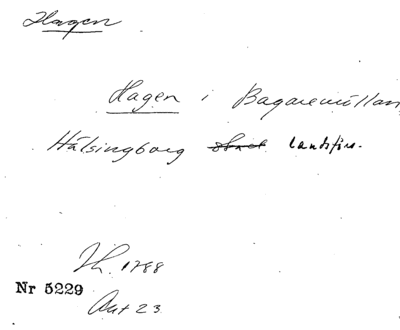 Hagen
Hagen i Bagaremöllan,
Hälsingborg landsförs.
Th. 1788
Nr 5229
Ant 23